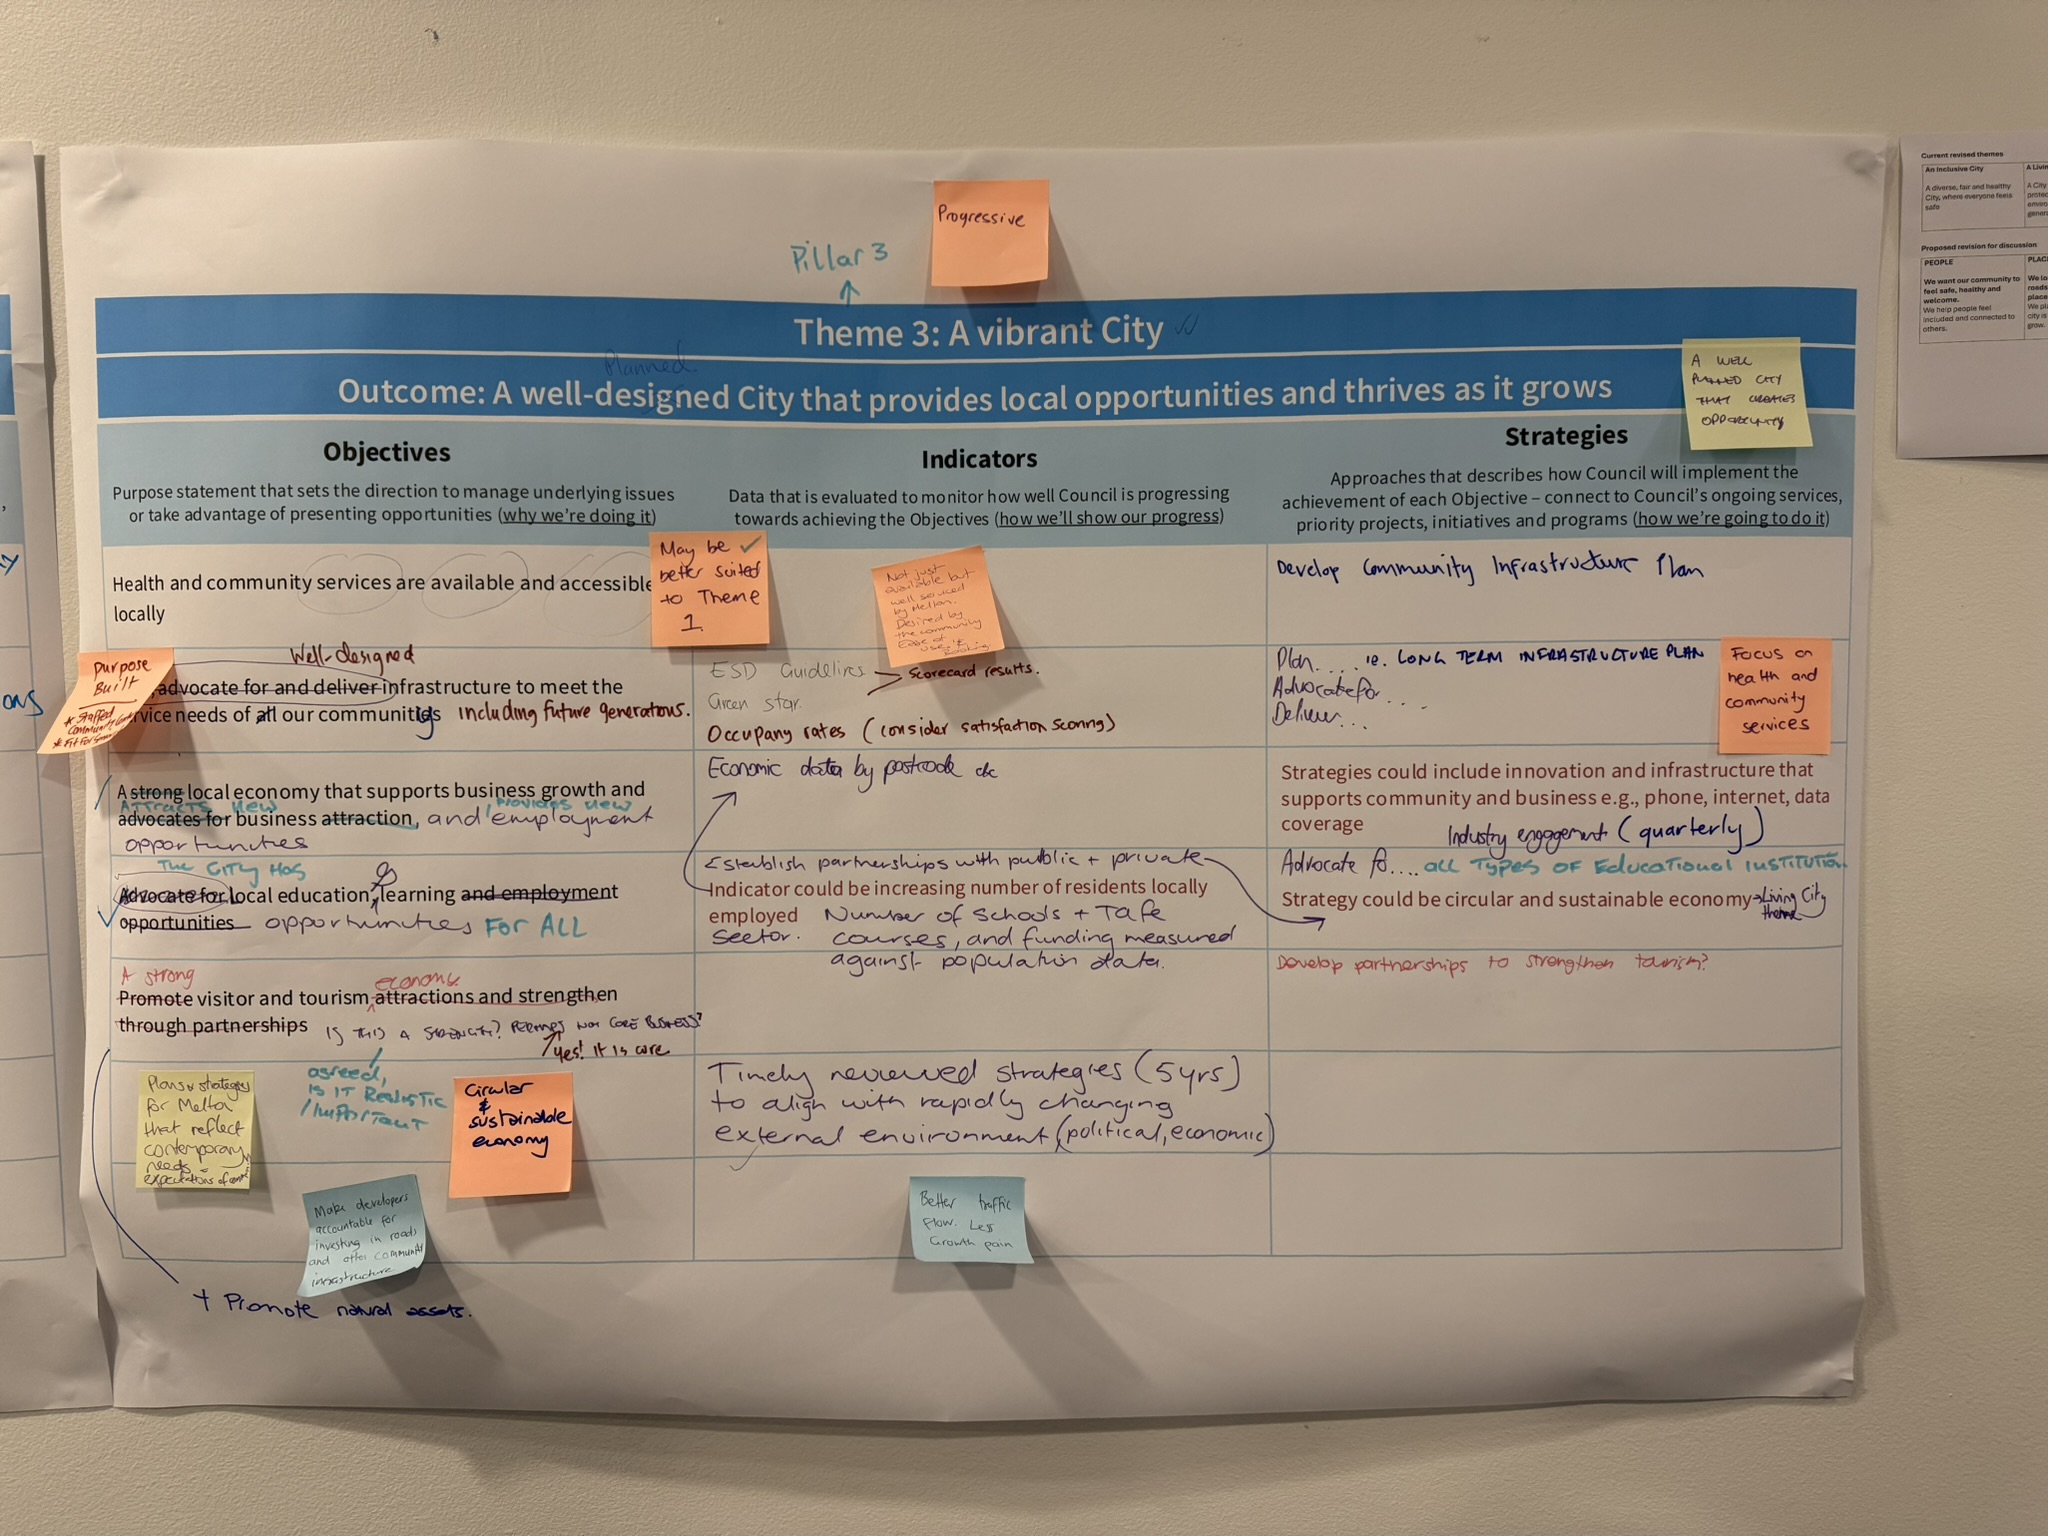 Progressive
Pillar 3
Theme 3: A vibrant City
Planned
Outcome: A well-designed City that provides local opportunities and thrives as it grows
A WELL
PLANNED CITY
THAT CREATES
OPPORTUNITY
Objectives
Purpose statement that sets the direction to manage underlying issues
or take advantage of presenting opportunities (why we're doing it)
Indicators
Data that is evaluated to monitor how well Council is progressing
towards achieving the Objectives (how we'll show our progress)
Strategies
Approaches that describes how Council will implement the
achievement of each Objective – connect to Council's ongoing services,
priority projects, initiatives and programs (how we're going to do it)
Health and community services are available and accessible
locally
May be
better suited
to Theme
1.
Not just
available but
well serviced
by Melton.
Desired by
the community
Ease of
use
Booking
Develop Community Infrastructure Plan
Purpose
Built
* Staffed
Community
* Fit For
Well-designed
advocate for and deliver infrastructure to meet the
service needs of all our communities including future generations.
ESD Guidelines
Scorecard results.
Green star.
Occupany rates (consider satisfaction scoring)
Plan.... i.e. LONG TERM INFRASTRUCTURE PLAN
Advocate for....
Deliver...
Focus on
health and
community
services
A strong local economy that supports business growth and
Attracts new
provides new
advocates for business attraction, and employment
opportunities
Economic data by postcode etc
Strategies could include innovation and infrastructure that
supports community and business e.g., phone, internet, data
coverage
Industry engagement (quarterly)
The City Has
Advocate for local education, & learning and employment
opportunities opportunities FOR ALL
Establish partnerships with public + private
Indicator could be increasing number of residents locally
employed
sector.
Number of schools + Tafe
courses, and funding measured
against population data.
Advocate fo.... all Types of Educational Institution
Strategy could be circular and sustainable economy
Living City
theme
A strong
economy.
Promote visitor and tourism attractions and strengthen
through partnerships
IS THIS A STRENGTH? PERHAPS NOT CORE BUSINESS?
Yes! It is core
Develop partnerships to strengthen tourism?
agreed,
Is IT Realistic
/Important
Plans & strategies
for Melton
that reflect
contemporary
needs &
expectations of
Circular
&
sustainable
economy
Timely reviewed strategies (5yrs)
to align with rapidly changing
external environment (political, economic)
Make developers
accountable for
investing in roads
and other community
infrastructure
Better traffic
flow. Less
Growth pain
+ Promote natural assets.
Current revised themes
An Inclusive City
A diverse, fair and healthy
City, where everyone feels
safe
A City
Proposed revision for discussion
PEOPLE
We want our community to
feel safe, healthy and
welcome.
We help people feel
included and connected to
others.
We
roads
place
city is
grow.